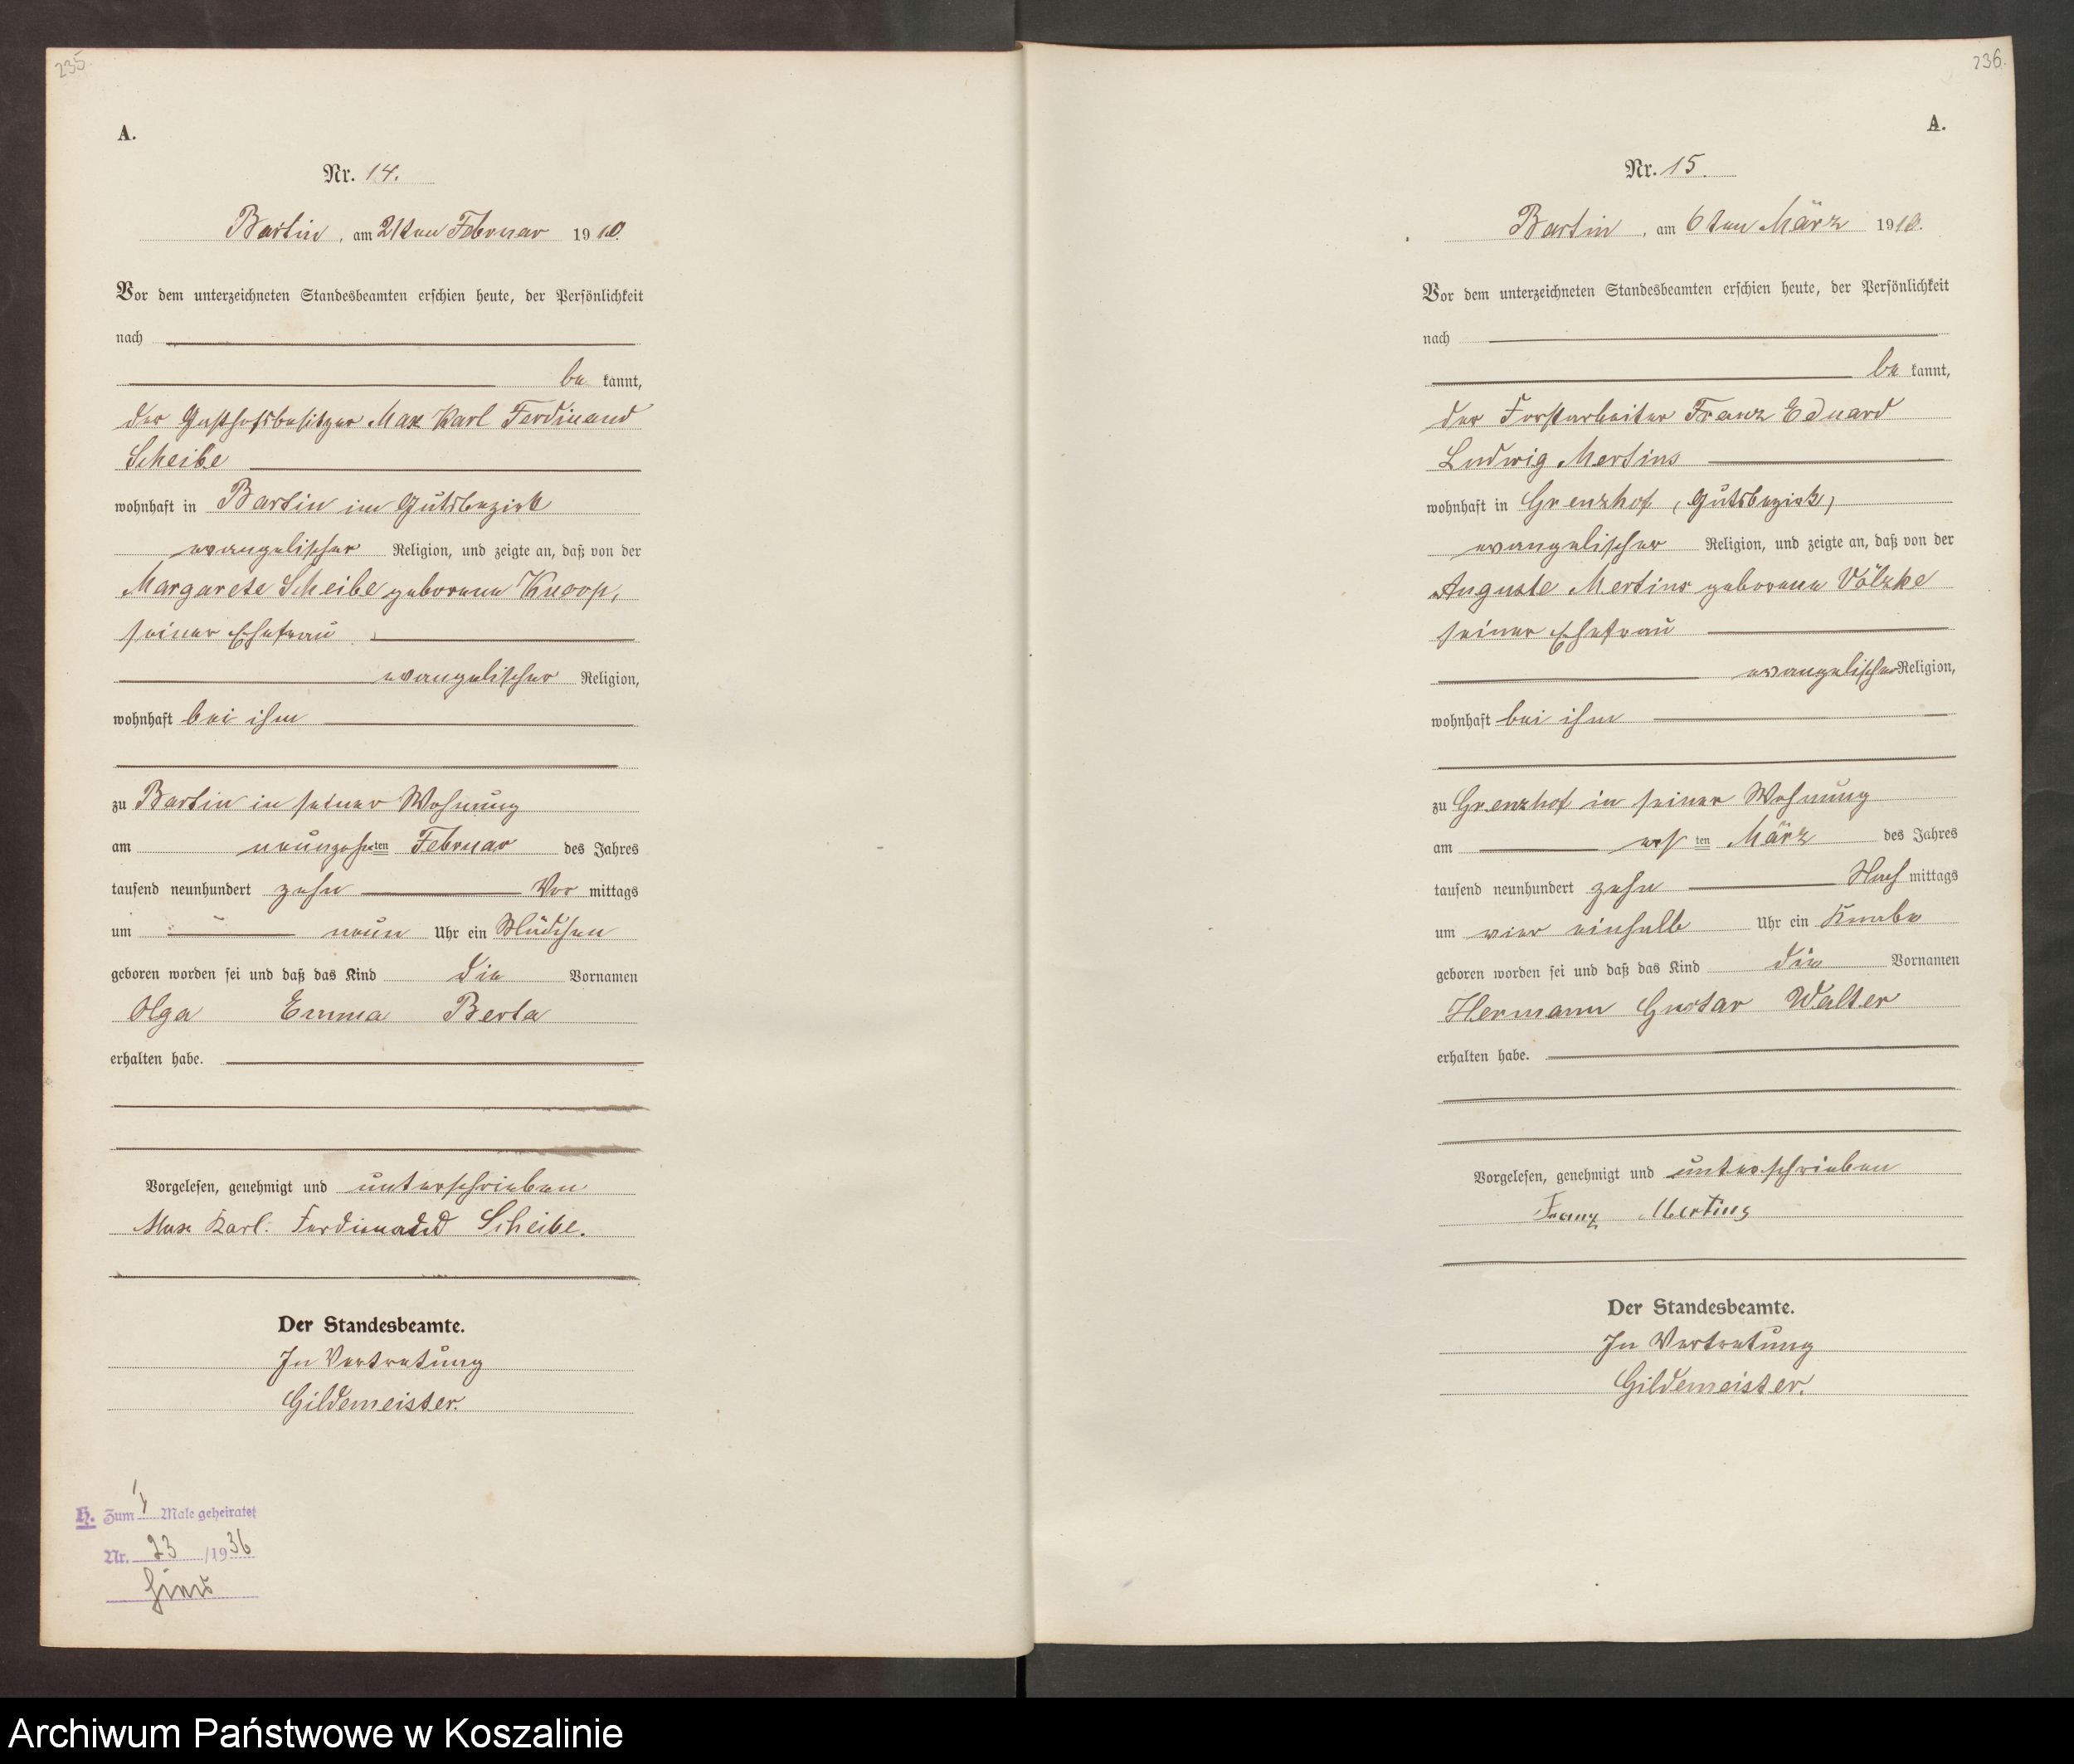 235.
A.
Nr. 14.
Bartin, am 21ten Februar 1910.
Vor dem unterzeichneten Standesbeamten erschien heute, der Persönlichkeit
nach
be kannt,
der Gasthofsbesitzer Max Karl Ferdinand
Scheibe
wohnhaft in Bartin im Gutsbezirk
evangelischer Religion, und zeigte an, daß von der
Margarete Scheibe geborene Knoop,
seiner Ehefrau
evangelischer Religion,
wohnhaft bei ihm
zu Bartin in seiner Wohnung
am neunzehnten Februar des Jahres
tausend neunhundert zehn Vor mittags
um neun Uhr ein Mädchen
geboren worden sei und daß das Kind die Vornamen
Olga Emma Berta
erhalten habe.
Vorgelesen, genehmigt und unterschrieben
Max Karl Ferdinand Scheibe.
Der Standesbeamte.
In Vertretung
Gildemeister.
H. Zum 1 Male geheiratet
Nr. 23 /1936
236.
A.
Nr. 15.
Bartin, am 6ten März 1910.
Vor dem unterzeichneten Standesbeamten erschien heute, der Persönlichkeit
nach
be kannt,
der Forstarbeiter Franz Eduard
Ludwig Mertins
wohnhaft in Grenzhof (Gutsbezirk)
evangelischer Religion, und zeigte an, daß von der
Auguste Mertins geborene Völzke
seiner Ehefrau
evangelischer Religion,
wohnhaft bei ihm
zu Grenzhof in seiner Wohnung
am ersten März des Jahres
tausend neunhundert zehn Nach mittags
um vier einhalb Uhr ein Knabe
geboren worden sei und daß das Kind die Vornamen
Hermann Gustav Walter
erhalten habe.
Vorgelesen, genehmigt und unterschrieben
Franz Mertins
Der Standesbeamte.
In Vertretung
Gildemeister.
Archiwum Państwowe w Koszalinie